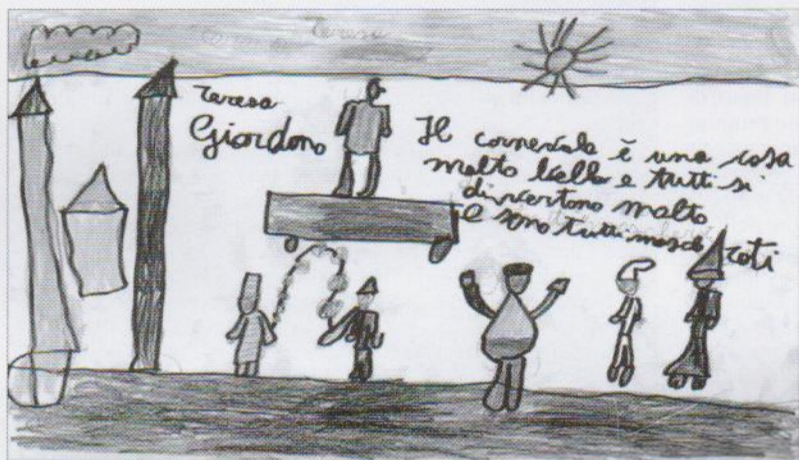 Teresa
Teresa
Giordano
Il carnevale è una cosa
molto bella e tutti si
divertono molto
e sono tutti masche
rati